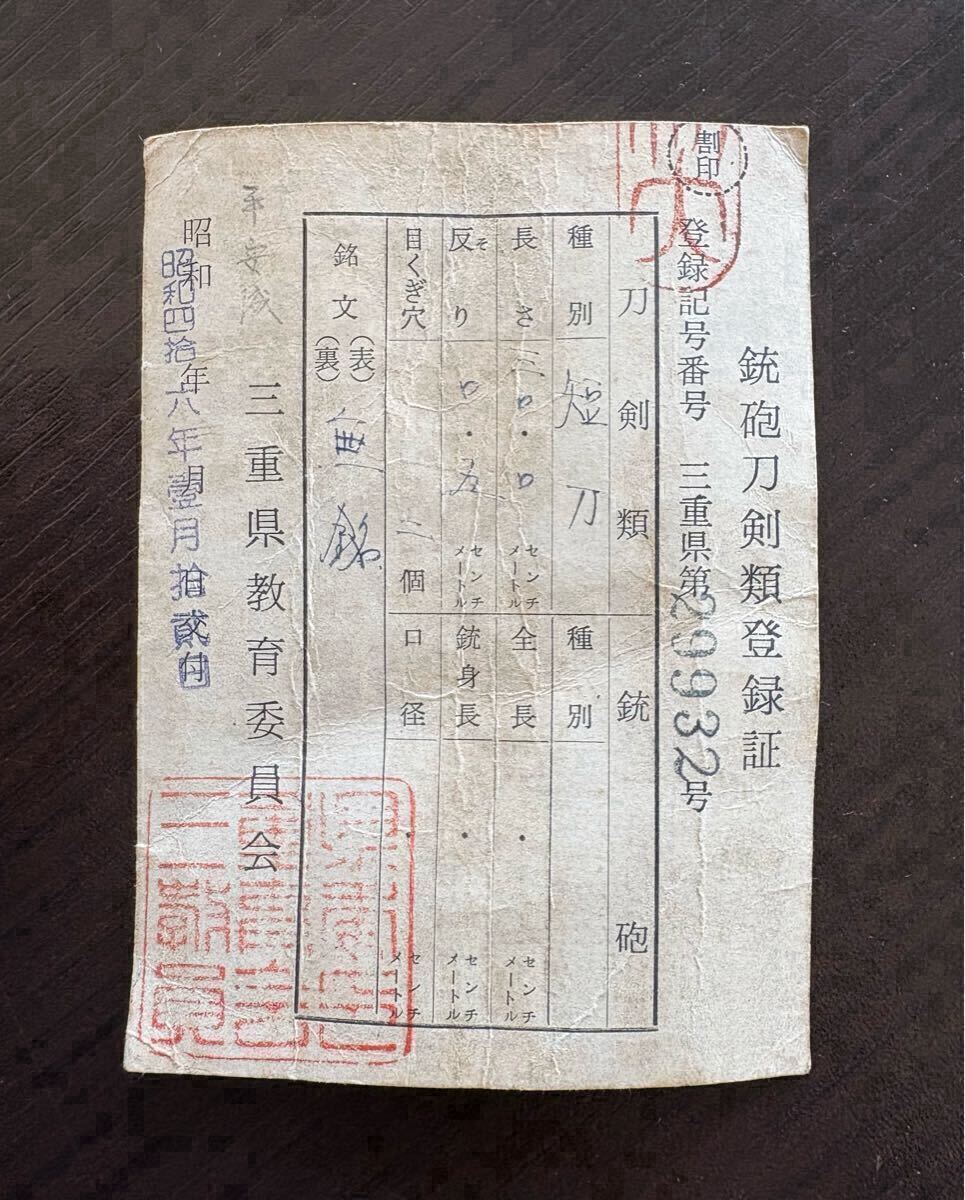 割印
銃砲刀剣類登録証
登録記号番号 三重県第29932号
刀剣類
種別 短刀
長さ 三〇・〇 センチメートル
反り 〇・五 センチメートル
そ
目くぎ穴 二個
銃砲
種別
全長 ・ センチメートル
銃身長 ・ センチメートル
口径 ・ センチメートル
銘文 (表)(裏) 無銘
三重県教育委員会
平安城
昭和 年 月 日交付
昭和四拾六年壹月拾貳日